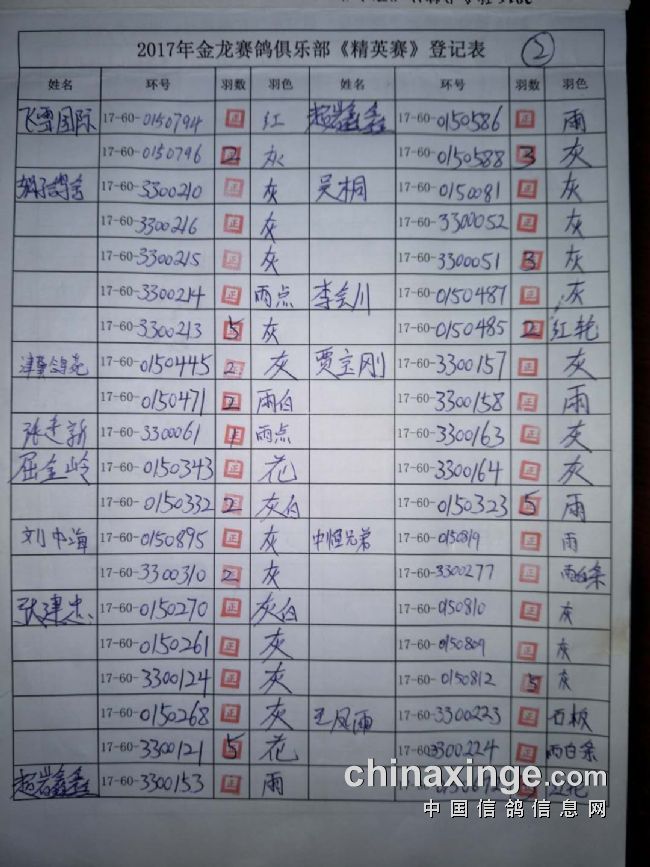 2017年金龙赛鸽俱乐部《精英赛》登记表 ②
姓名 环号 羽数 羽色 姓名 环号 羽数 羽色
飞雪国际 17-60-0150794 正 红 17-60-0150586 正 雨
17-60-0150796 2 灰 17-60-0150588 3 灰
17-60-3300210 正 灰 吴桐 17-60-0150081 正 灰
17-60-3300216 正 灰 17-60-3300052 正 灰
17-60-3300215 正 灰 17-60-3300051 3 灰
17-60-3300214 正 雨点 李会川 17-60-0150487 正 灰
17-60-3300213 5 灰 17-60-0150485 2 红轮
17-60-0150445 2 灰 贾宝刚 17-60-3300157 正 灰
17-60-0150471 2 雨白 17-60-3300158 正 雨
张建新 17-60-3300061 1 雨点 17-60-3300163 正 灰
屈金岭 17-60-0150343 正 花 17-60-3300164 正 灰
17-60-0150332 2 灰白 17-60-0150323 5 雨
刘中海 17-60-0150895 正 灰 中恒兄弟 17-60-0150819 正 雨
17-60-3300310 2 灰 17-60-3300277 正 雨白条
张建忠 17-60-0150270 正 灰白 17-60-0150810 正 灰
17-60-0150261 正 灰 17-60-0150809 正 灰
17-60-3300124 正 灰 17-60-0150812 5 灰
17-60-0150268 正 灰 王风雨 17-60-3300223 正 石板
17-60-3300121 5 花 17-60-3300224 正 雨白条
17-60-3300153 正 雨 17-60-
chinaxinge.com
中国信鸽信息网